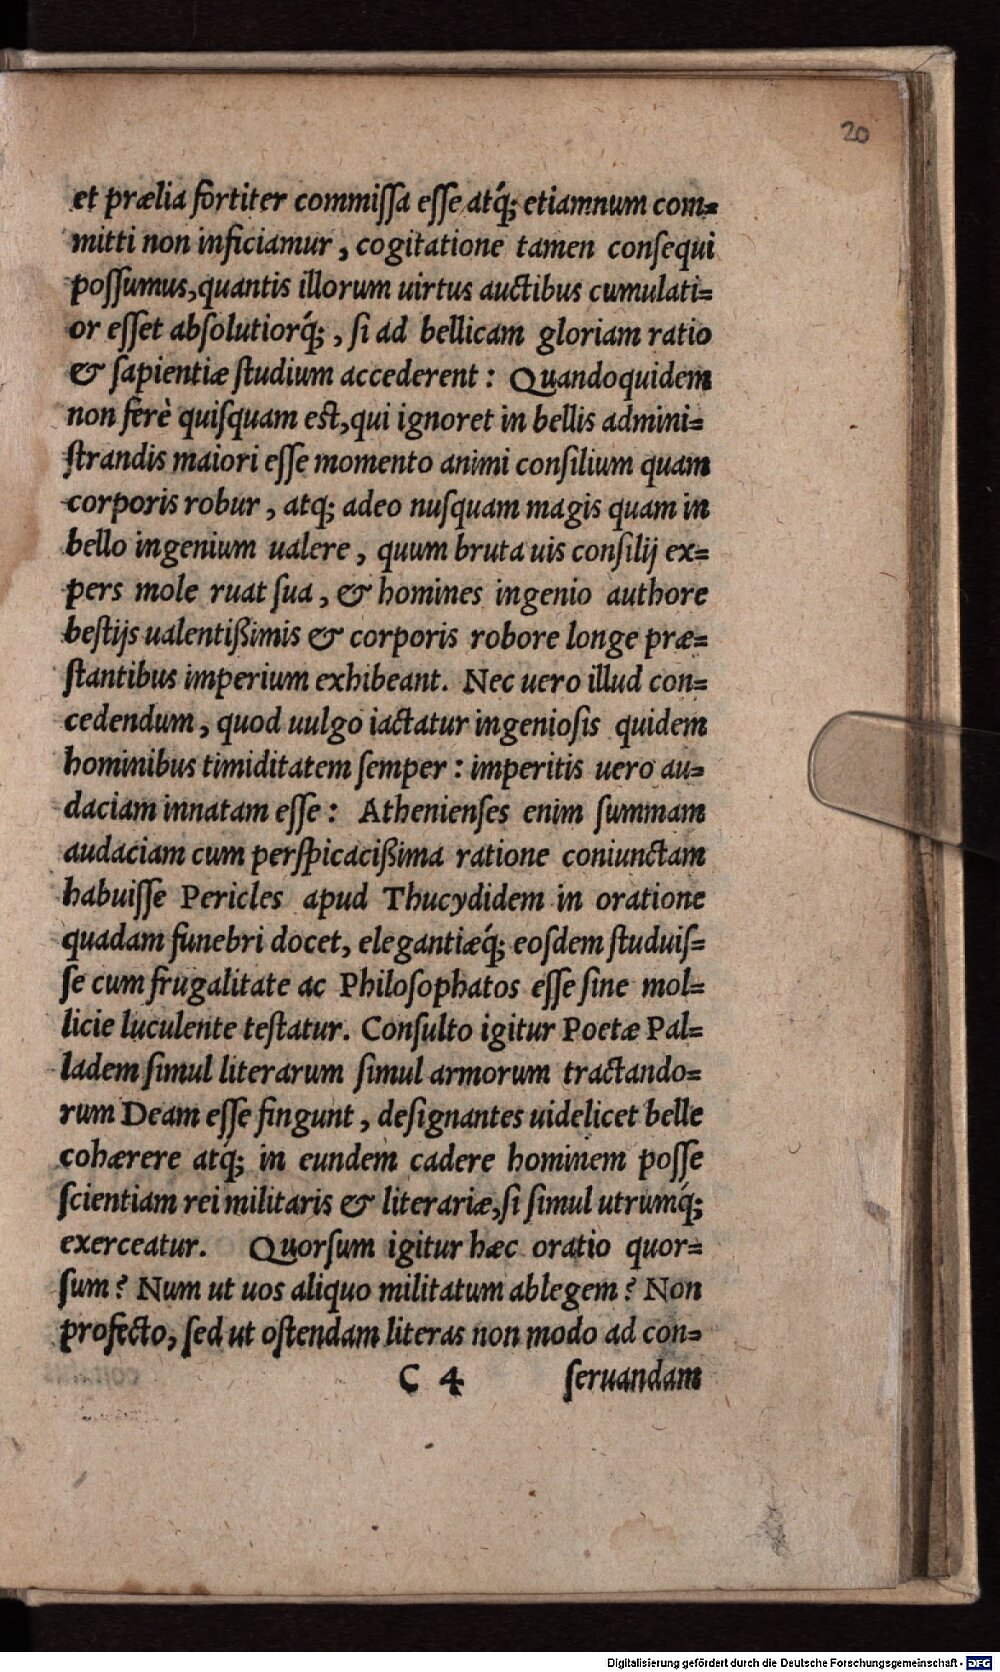 20
et prælia fortiter commiſſa eſſe atq́; etiamnum com=
mitti non inficiamur, cogitatione tamen conſequi
poſſumus, quantis illorum uirtus auctibus cumulati=
or eſſet abſolutiorq́;, ſi ad bellicam gloriam ratio
& ſapientiæ ſtudium accederent: Quandoquidem
non ferè quiſquam est, qui ignoret in bellis admini=
ſtrandis maiori eſſe momento animi conſilium quam
corporis robur, atq; adeo nuſquam magis quam in
bello ingenium ualere, quum bruta uis conſilij ex=
pers mole ruat ſua, & homines ingenio authore
beſtijs ualentißimis & corporis robore longe præ=
ſtantibus imperium exhibeant. Nec uero illud con=
cedendum, quod uulgo iactatur ingenioſis quidem
hominibus timiditatem ſemper: imperitis uero au=
daciam innatam eſſe: Athenienſes enim ſummam
audaciam cum perſpicacißima ratione coniunctam
habuiſſe Pericles apud Thucydidem in oratione
quadam funebri docet, elegantiæq́; eoſdem ſtuduiſ=
ſe cum frugalitate ac Philoſophatos eſſe ſine mol=
licie luculente teſtatur. Conſulto igitur Poetæ Pal=
ladem ſimul literarum ſimul armorum tractando=
rum Deam eſſe fingunt, deſignantes uidelicet belle
cohærere atq́; in eundem cadere hominem poſſe
ſcientiam rei militaris & literariæ, ſi ſimul utrumq́;
exerceatur. Quorſum igitur hæc oratio quor=
ſum? Num ut uos aliquo militatum ablegem? Non
profecto, ſed ut oſtendam literas non modo ad con=
C 4 ſeruandam
Digitalisierung gefördert durch die Deutsche Forschungsgemeinschaft - DFG